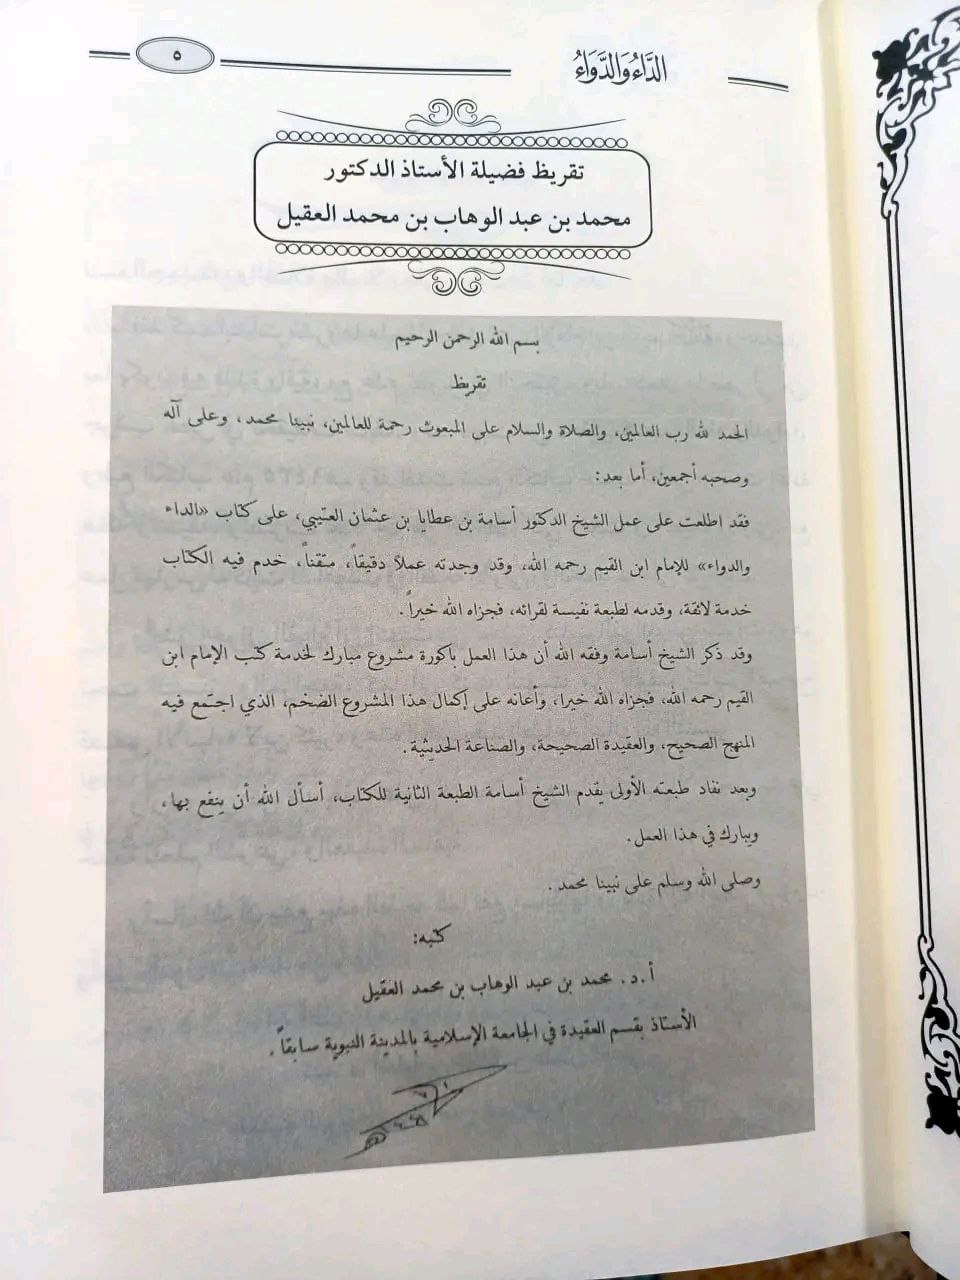 الدَّاءُ وَالدَّوَاءُ
٥
تقريظ فضيلة الأستاذ الدكتور
محمد بن عبد الوهاب بن محمد العقيل
بسم الله الرحمن الرحيم
تقريظ
الحمد لله رب العالمين، والصلاة والسلام على المبعوث رحمة للعالمين، نبينا محمد، وعلى آله
وصحبه أجمعين، أما بعد:
فقد اطلعت على عمل الشيخ الدكتور أسامة بن عطايا بن عثمان العتيبي، على كتاب «الداء
والدواء» للإمام ابن القيم رحمه الله، وقد وجدته عملاً دقيقاً، متقناً، خدم فيه الكتاب
خدمة لائقة، وقدمه لطبعة نفيسة لقرائه، فجزاه الله خيراً.
وقد ذكر الشيخ أسامة وفقه الله أن هذا العمل باكورة مشروع مبارك لخدمة كتب الإمام ابن
القيم رحمه الله، فجزاه الله خيرا، وأعانه على إكمال هذا المشروع الضخم، الذي اجتمع فيه
المنهج الصحيح، والعقيدة الصحيحة، والصناعة الحديثية.
وبعد نفاد طبعته الأولى يقدم الشيخ أسامة الطبعة الثانية للكتاب، أسأل الله أن ينفع بها،
ويبارك في هذا العمل.
وصلى الله وسلم على نبينا محمد.
كتبه:
أ.د. محمد بن عبد الوهاب بن محمد العقيل
الأستاذ بقسم العقيدة في الجامعة الإسلامية بالمدينة النبوية سابقاً.